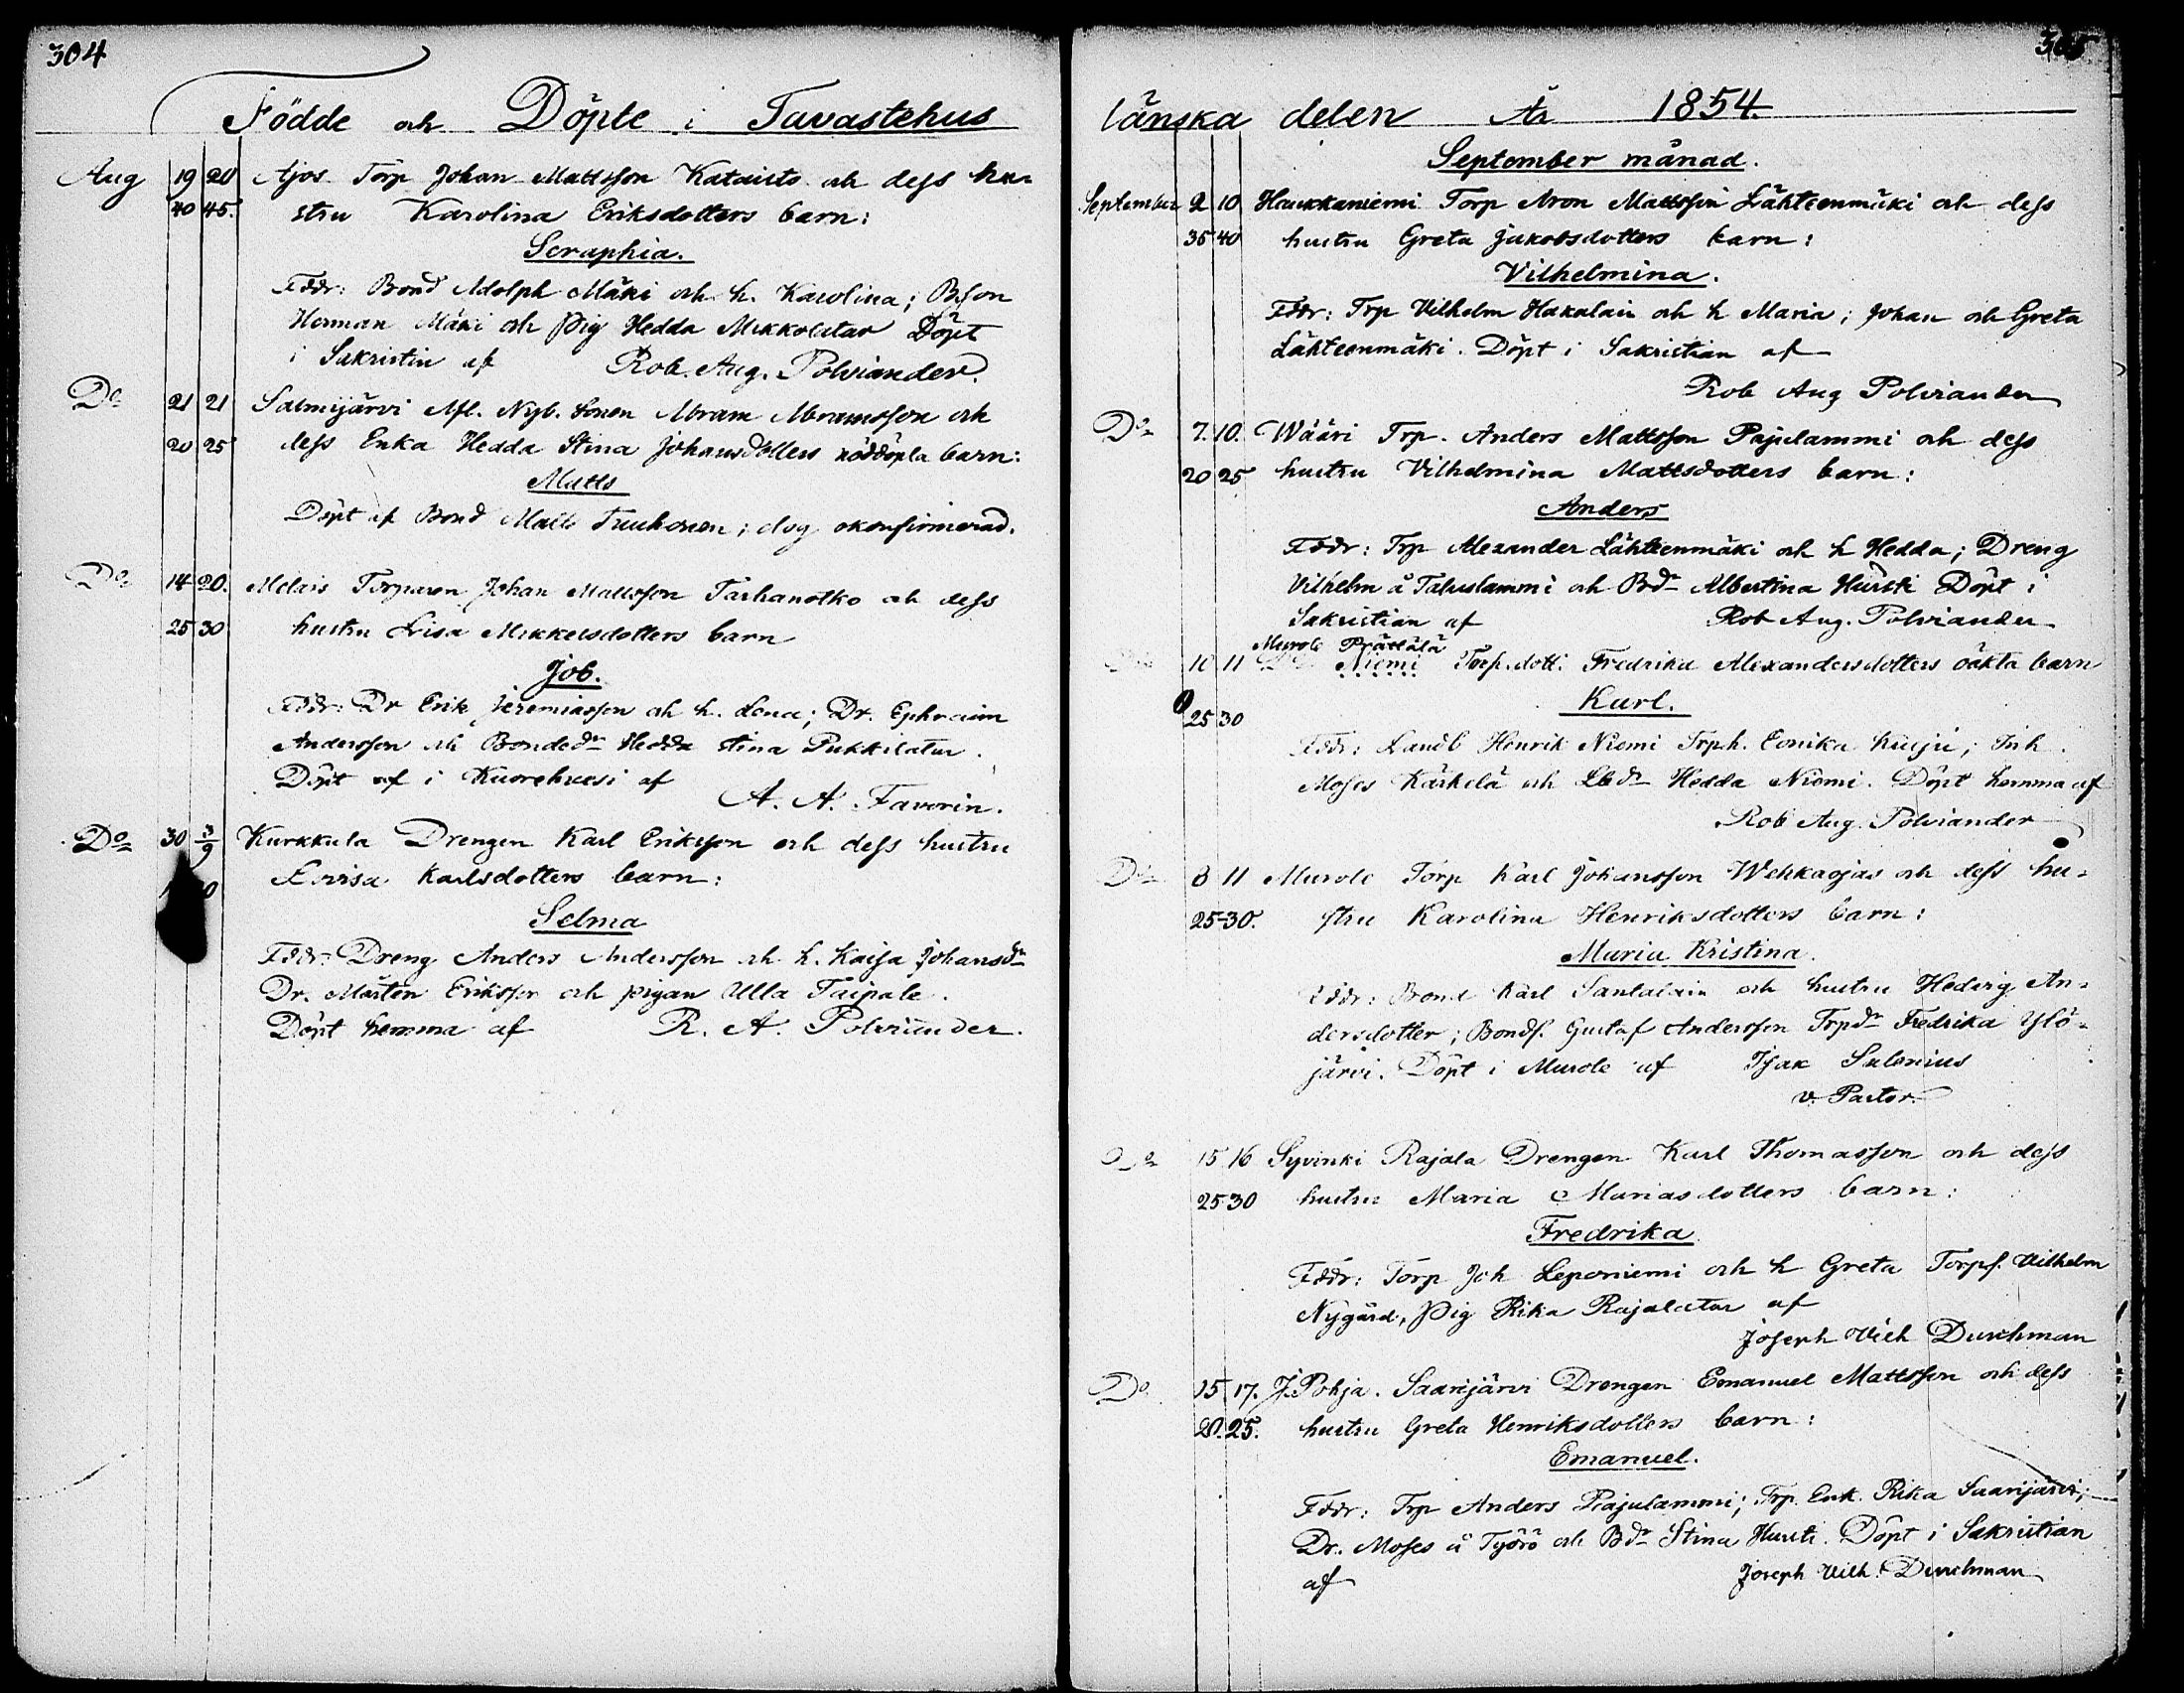 304
Födde och Döpte i Tavastehus
Aug 19 20 Ajos Torp Johan Mattsson Kataisto och dess hu-
40 45. stru Karolina Eriksdotters barn:
Seraphia.
Fddr: Bond Adolph Mäki och h. Karolina; B.son
Herman Mäki och Pig Hedda Mikkolatar Döpt
i Sakristin af Rob. Aug. Polviander.
Do 21 21 Salmijärvi Afl. Nyb. Sonen Abram Abramsson och
20 25 dess Enka Hedda Stina Johansdotters nöddöpta barn:
Matts
Döpt af Bond Matts Tuuhonen; dog okonfirmerad.
Do 14 20. Melais Torparen Johan Mattsson Tarhanotko och dess
25 30 hustru Lisa Mikkelsdotters barn
Job.
Fddr: Dr Erik Jeremiasson och h. Lena; Dr. Ephraim
Andersson och Bonded:r Hedda Stina Pukkilatar.
Döpt af i Kuorehvesi af
A. A. Favorin.
Do 30 3/9 Kurkkula Drengen Karl Eriksson och dess hustru
Lovisa Karlsdotters barn:
Selma
Fddr: Dreng Anders Andersson och h. Kaisa Johansd:r
Dr. Mårten Eriksson och pigan Ulla Taipale.
Döpt hemma af R. A. Polviander.
305
länska delen År 1854.
September månad.
September 2 10 Haukkaniemi Torp Aron Mattsson Lähteenmäki och dess
35 40 hustru Greta Jakobsdotters barn:
Vilhelmina.
Fddr: Trp Vilhelm Hakalain och h Maria; Johan och Greta
Lähteenmäki. Döpt i Sakristian af
Rob Aug Polviander
Do 7. 10. Wääri Trp. Anders Mattsson Pajulammi och dess
20 25 hustru Vilhelmina Mattsdotters barn:
Anders
Fddr: Trp Alexander Lähteenmäki och h Hedda; Dreng
Vilhelm å Taluslammi och Bd:r Albertina Hursti Döpt i
Sakristian af Rob Aug. Polviander
Murole Prättälä
10 11 Niemi Torp.dott. Fredrika Alexandersdotters oäkta barn
Karl.
25 30
Fddr: Landb Henrik Niemi Trph. Eonika Kuiju; Inh.
Moses Kärkelä och Lbd:r Hedda Niemi. Döpt hemma af
Rob Aug. Polviander
Do 8 11 Murole Torp Karl Johansson Wehkaojas och dess hu-
25 30. stru Karolina Henriksdotters barn:
Maria Kristina.
Fddr: Bond Karl Santalain och hustru Hedvig An-
dersdotter; Bonds. Gustaf Andersson Trpd:r Fredrika Ylö-
järvi. Döpt i Murole af Isak Salenius
v. Pastor.
Do 15 16 Syvinki Rajala Drengen Karl Thomasson och dess
25 30 hustru Maria Mariasdotters barn:
Fredrika
Fddr: Torp Joh Leponiemi och h Greta Torps. Vilhelm
Nygård, Pig Rika Rajalatar af
Joseph Vilh Durchman
Do 15 17. J. Pohja. Saarijärvi Drengen Emanuel Mattsson och dess
20. 25. hustru Greta Henriksdotters barn:
Emanuel.
Fddr: Trp Anders Pajulammi; Trp. Enk. Rika Saarijärvi;
Dr. Moses å Työrö och Bd:r Stina Hursti. Döpt i Sakristian
af Joseph Vilh. Durchman